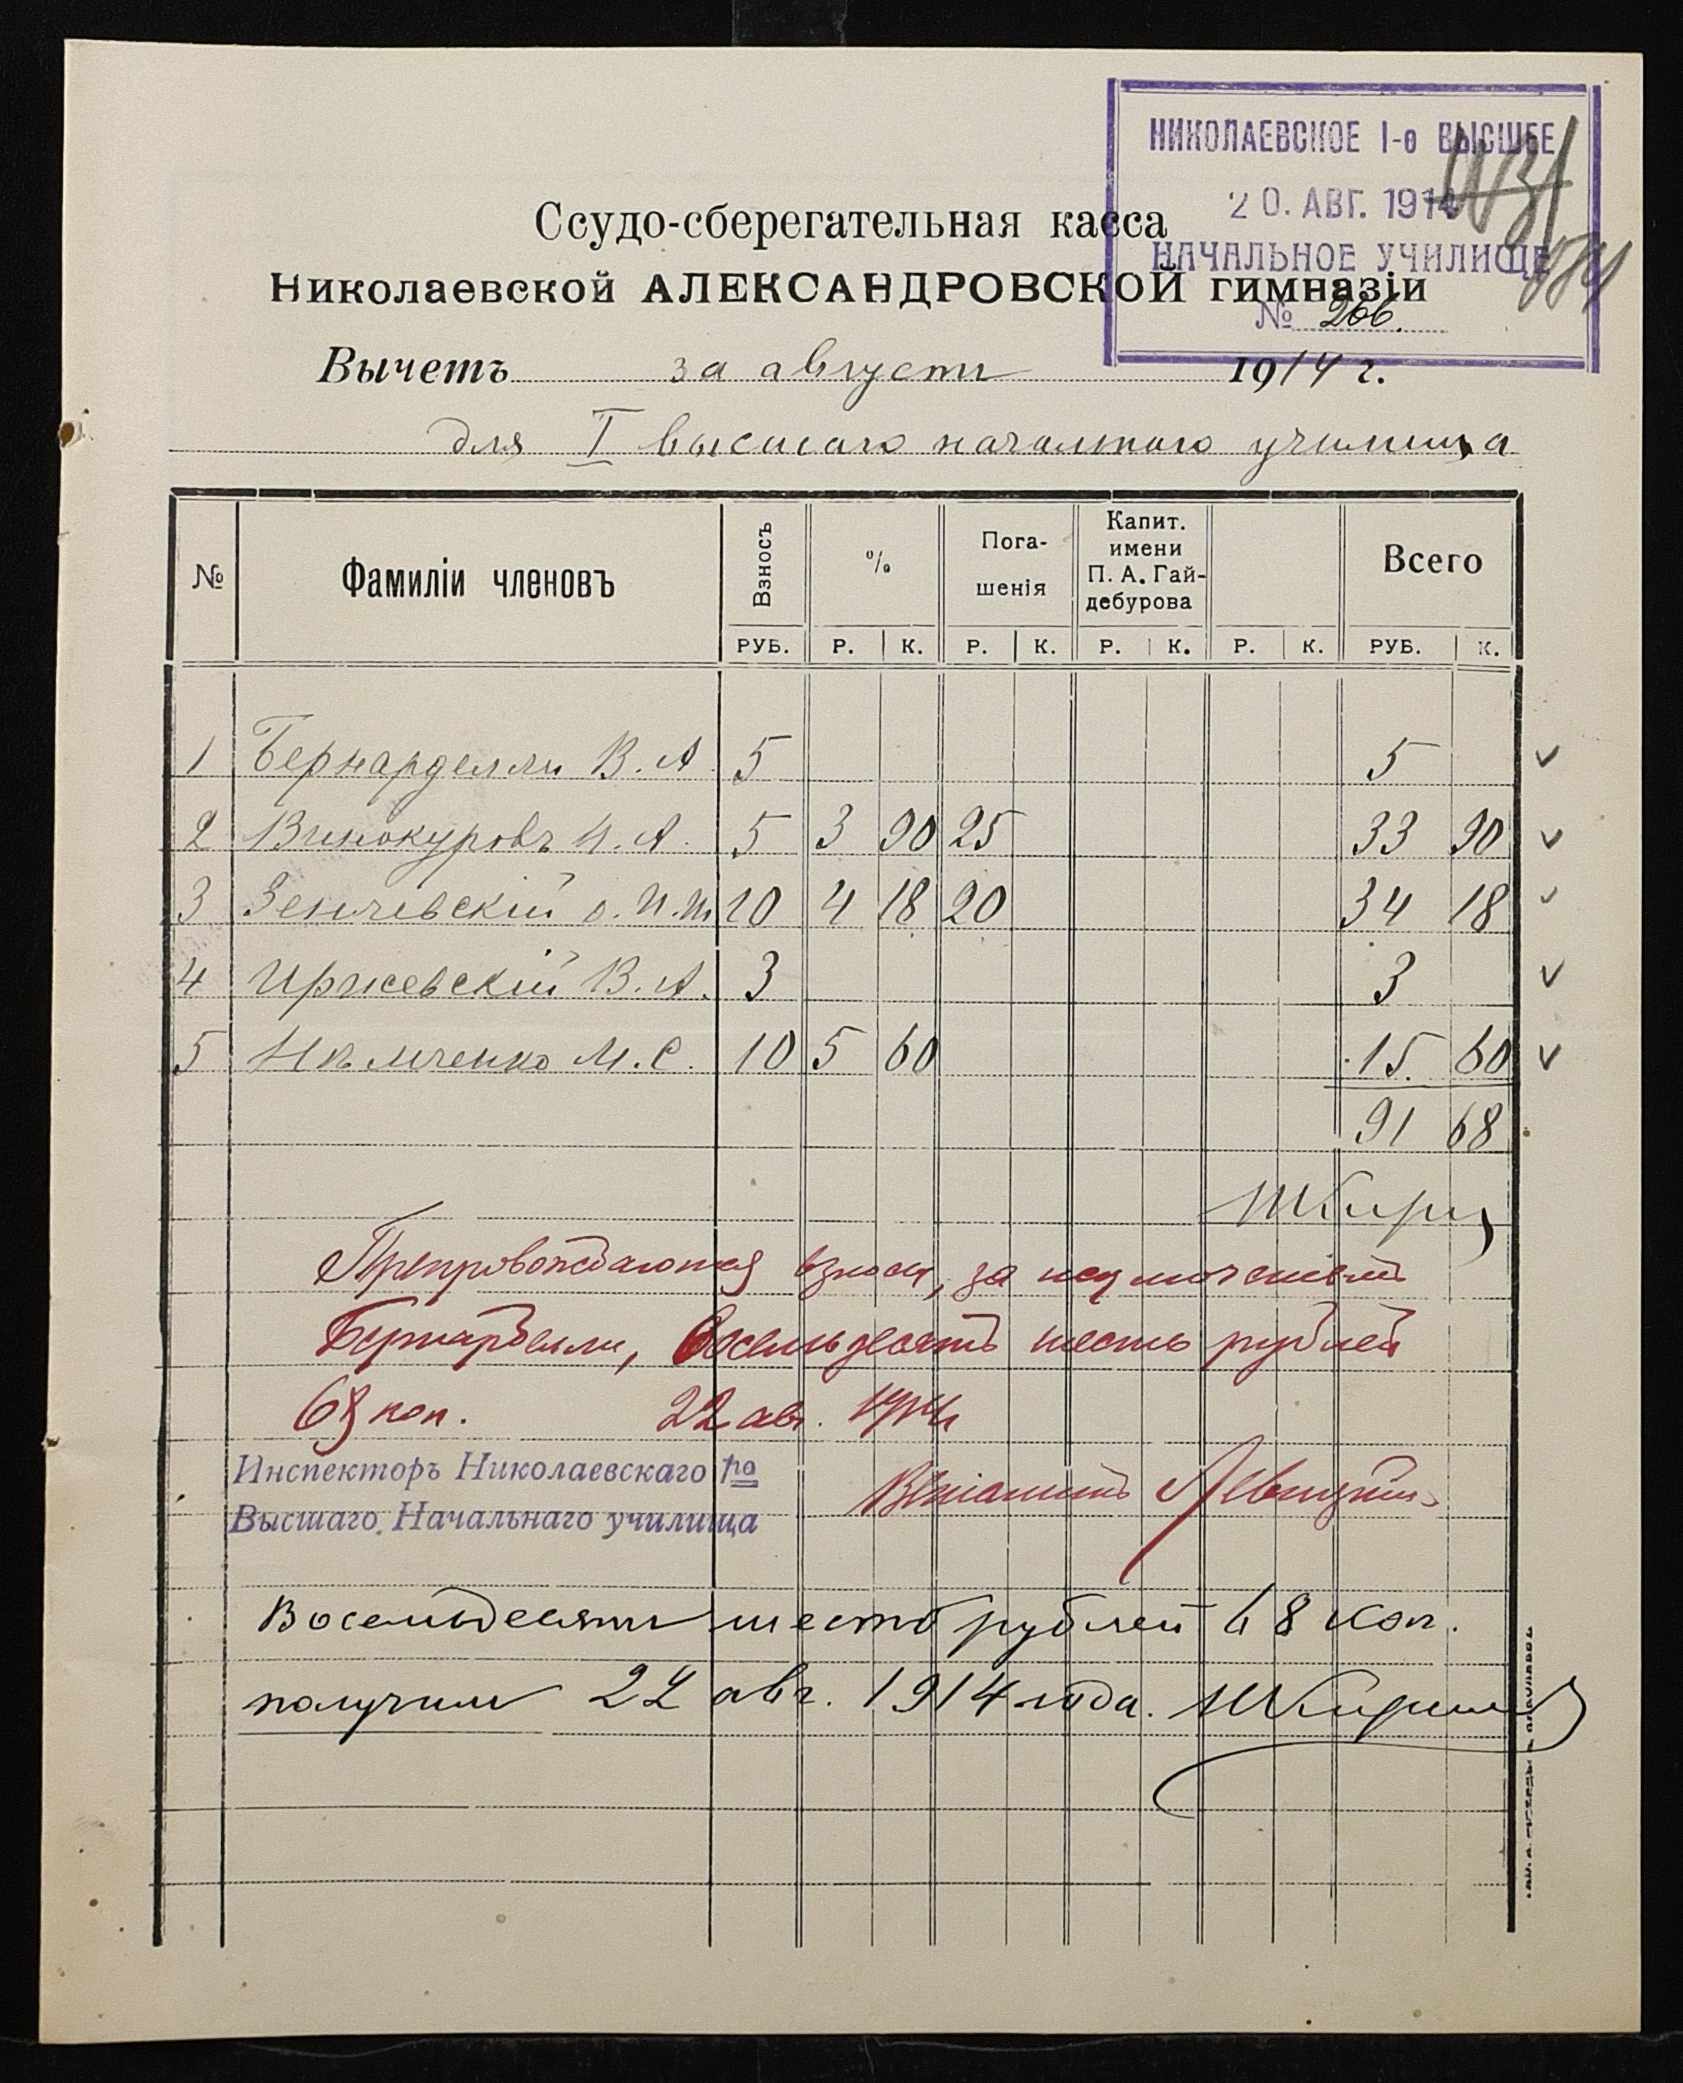 НИКОЛАЕВСКОЕ I-е ВЫСШЕЕ
20. АВГ. 1914
НАЧАЛЬНОЕ УЧИЛИЩЕ
№ 266.
Ссудо-сберегательная касса
Николаевской АЛЕКСАНДРОВСКОЙ гимназіи
Вычетъ за августъ 1914 г.
для I высшаго начальнаго училища
№ Фамиліи членовъ Взносъ % Пога-шенія Капит. имени П. А. Гай-дебурова Всего
РУБ. Р. К. Р. К. Р. К. Р. К. РУБ. К.
1 Бернарделли В. А 5 5
2 Винокуровъ Н. А. 5 3 90 25 33 90
3 Зенчевскій о. И. 10 4 18 20 34 18
4 Иржевскій В. А. 3 3
5 Нѣмченко М. С. 10 5 60 15. 60
91 68
Препровождаются взносы, за исключеніемъ
Бернарделли, восемьдесятъ шесть рублей
68 коп. 22 авг. 1914
Инспекторъ Николаевскаго 1го
Высшаго Начальнаго училища
Веніаминъ Левицкій
Восемьдесятъ шесть рублей 68 коп.
получилъ 22 авг. 1914 года.